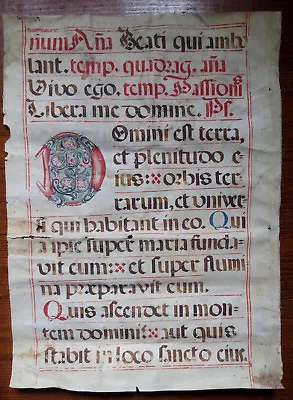 num Aña Beati qui amb
lant. temp. quadrag. aña
Vivo ego. temp. Passiois
Libera me domine. Ps.
Domini est terra,
et plenitudo e
ius: orbis ter
rarum, et univer
si qui habitant in eo. Qui
a ipse super maria funda-
vit eum: et super flumi
na præparavit eum.
Quis ascendet in mon-
tem domini: aut quis
stabit in loco sancto eius.